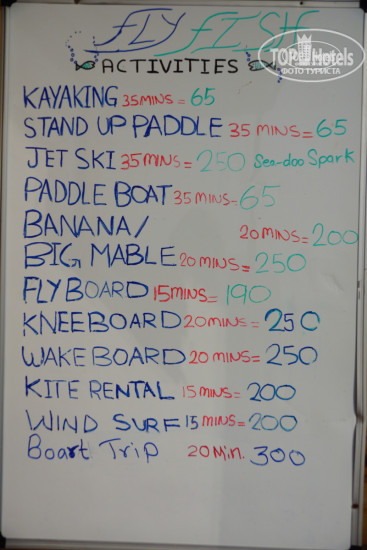 FLY FISH
TOP Hotels
ФОТО ТУРИСТА
ACTIVITIES
KAYAKING 35MINS = 65
STAND UP PADDLE 35 MINS = 65
JET SKI 35MINS = 250 Sea-doo Spark
PADDLE BOAT 35MINS = 65
BANANA/ 20MINS = 200
BIG MABLE 20MINS = 250
FLYBOARD 15MINS = 190
KNEEBOARD 20MINS = 250
WAKE BOARD 20 MINS = 250
KITE RENTAL 15MINS = 200
WIND SURF 15 MINS = 200
Boart Trip 20Min. 300